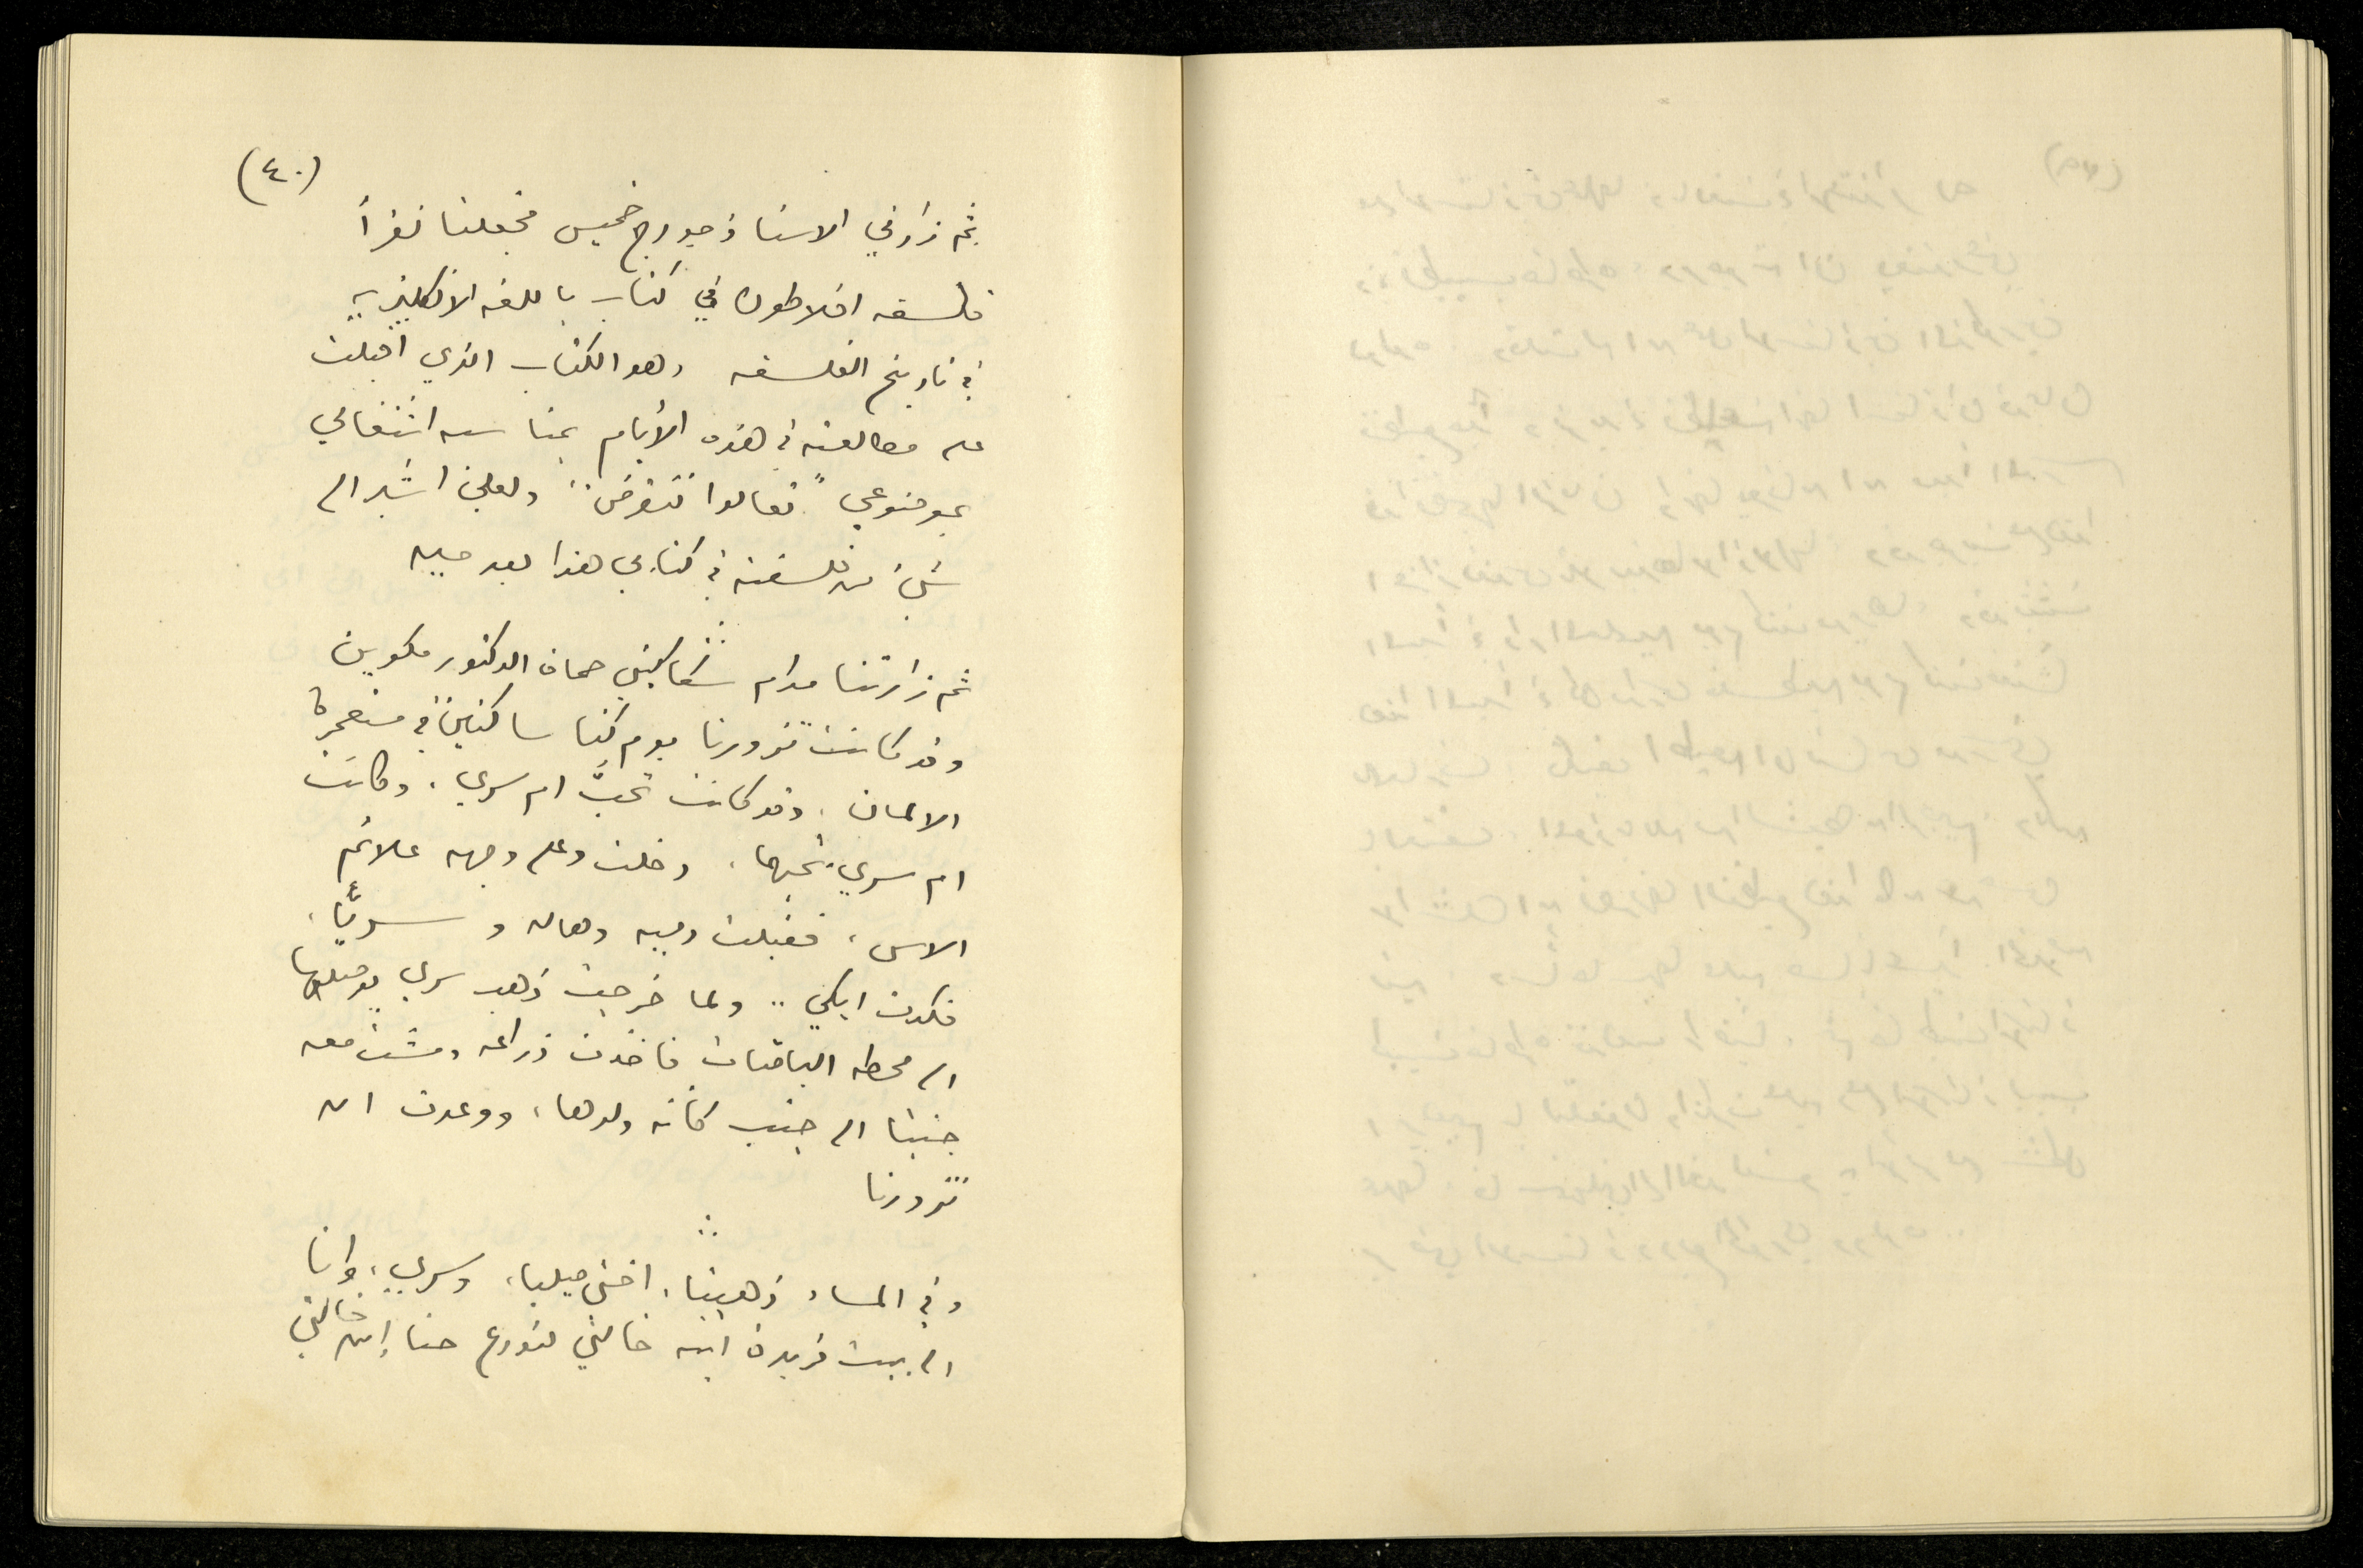 (٤٠)
ثم زارني الاستاذ جورج خميس فجعلنا نقرأ
فلسفه افلاطون في كتاب باللغه الانكليزيه
في تاريخ الفلسفه وهو الكتاب الذي اقبلت
على مطالعته في هذه الأيام بمناسبه اشتغالي
بموضوعي "تعالوا ننقرض" ولعلي اشير الى
شيء من فلسفته في كتابي هذا بعد حين
ثم زارتنا مدام حماة الدكتور
وقد كانت تزورنا يوم كنا ساكنين في مستعمرة
الالمان، وقد كانت تحبّ ام سري، وكانت
ام سري تحبها، دخلت وعلى وجهه علائم
الاسى، فقبلت دميه وهاله و سريًّا،
فكدت ابكي .. ولما خرجت ذهب سري يوصلها
الى محطه الباصات فاخذت ذراعه ومشت معه
جنبًا الى جنب كأنه ولدها، ووعدت ان
تزورنا
وفي المساء ذهبنا، اختي ميليا، وسري، وانا
الى بيت فريدة ابنه خالتي لنودع حنا إبن خالتي